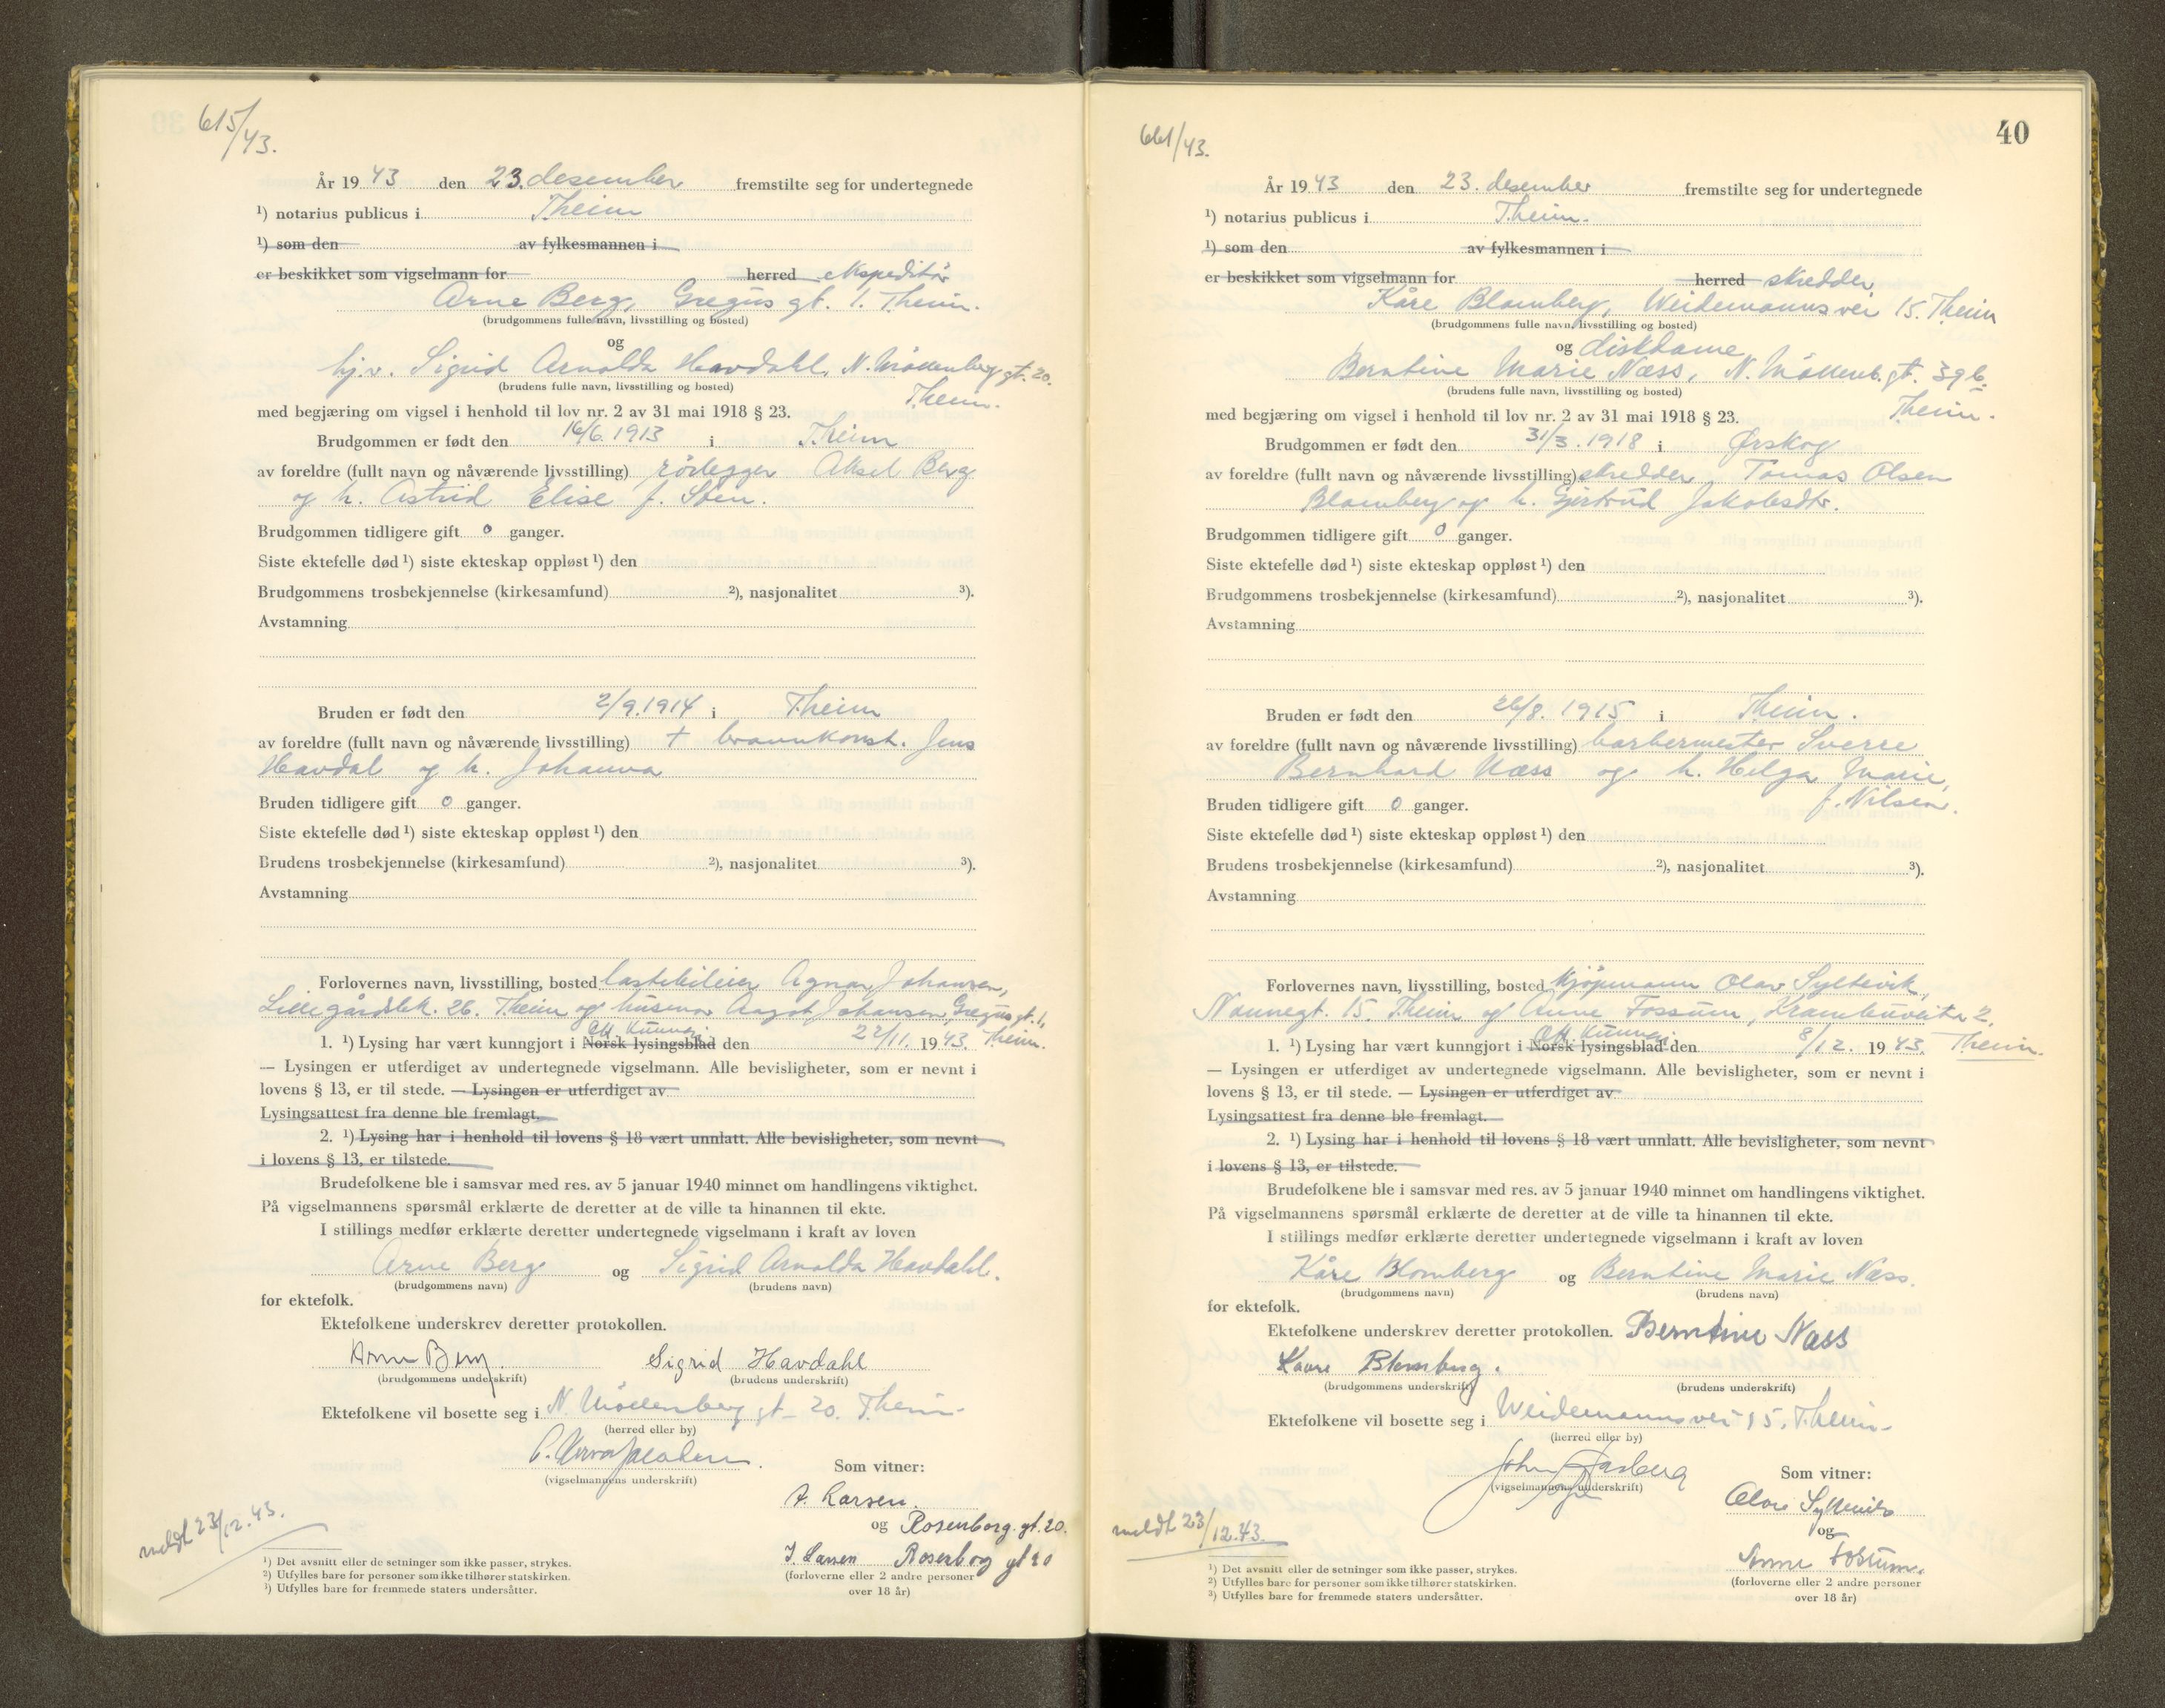 615/43.
År 1943 den 23. desember fremstilte seg for undertegnede
¹) notarius publicus i T.heim
¹) som den av fylkesmannen i
er beskikket som vigselmann for herred ekspeditör
Arne Berg, Gregus gt. 1. T.heim.
(brudgommens fulle navn, livsstilling og bosted)
og
hj.v. Sigrid Arnolda Havdahl, N. Möllenberg gt. 20.
T.heim.
(brudens fulle navn, livsstilling og bosted)
med begjæring om vigsel i henhold til lov nr. 2 av 31 mai 1918 § 23.
Brudgommen er født den 16/6. 1913 i T.heim
av foreldre (fullt navn og nåværende livsstilling) rörlegger Aksel Berg
og h. Astrid Elise f. Sten.
Brudgommen tidligere gift 0 ganger.
Siste ektefelle død ¹) siste ekteskap oppløst ¹) den
Brudgommens trosbekjennelse (kirkesamfund) ²), nasjonalitet ³).
Avstamning
Bruden er født den 2/9.1914 i T.heim
av foreldre (fullt navn og nåværende livsstilling) + brannkonst. Jens
Havdal og h. Johanna
Bruden tidligere gift 0 ganger.
Siste ektefelle død ¹) siste ekteskap oppløst ¹) den
Brudens trosbekjennelse (kirkesamfund) ²), nasjonalitet ³).
Avstamning
Forlovernes navn, livsstilling, bosted lastebileier Agnar Johansen,
Lillegårdsbk. 26. T.heim og husmor Aagot Johansen, Gregus gt. 1,
T.heim.
Off. Kunngj.
1. ¹) Lysing har vært kunngjort i Norsk lysingsblad den 22/11. 1943.
— Lysingen er utferdiget av undertegnede vigselmann. Alle bevisligheter, som er nevnt i
lovens § 13, er til stede. — Lysingen er utferdiget av
Lysingsattest fra denne ble fremlagt.
2. ¹) Lysing har i henhold til lovens § 18 vært unnlatt. Alle bevisligheter, som nevnt
i lovens § 13, er tilstede.
Brudefolkene ble i samsvar med res. av 5 januar 1940 minnet om handlingens viktighet.
På vigselmannens spørsmål erklærte de deretter at de ville ta hinannen til ekte.
I stillings medfør erklærte deretter undertegnede vigselmann i kraft av loven
Arne Berg og Sigrid Arnolda Havdahl.
(brudgommens navn) (brudens navn)
for ektefolk.
Ektefolkene underskrev deretter protokollen.
Arne Berg. Sigrid Havdahl
(brudgommens underskrift) (brudens underskrift)
Ektefolkene vil bosette seg i N. Möllenberg gt. 20. T.heim.
(herred eller by)
(vigselmannens underskrift)
Som vitner:
A. Larsen.
og Rosenborg. gt. 20.
J. Larsen Rosenborg gt 20
(forloverne eller 2 andre personer
over 18 år)
meldt 23/12. 43.
¹) Det avsnitt eller de setninger som ikke passer, strykes.
²) Utfylles bare for personer som ikke tilhører statskirken.
³) Utfylles bare for fremmede staters undersåtter.
40
661/43.
År 1943 den 23. desember fremstilte seg for undertegnede
¹) notarius publicus i T.heim.
¹) som den av fylkesmannen i
er beskikket som vigselmann for herred skredder
Kåre Blomberg, Weidemannsvei 15. T.heim
(brudgommens fulle navn, livsstilling og bosted)
og diskdame
Berntine Marie Næss, N. Möllenb. gt. 39 b.
T.heim.
(brudens fulle navn, livsstilling og bosted)
med begjæring om vigsel i henhold til lov nr. 2 av 31 mai 1918 § 23.
Brudgommen er født den 31/3. 1918 i Ørskog
av foreldre (fullt navn og nåværende livsstilling) skredder Tomas Olsen
Blomberg og h. Gjertrud Jakobsdtr.
Brudgommen tidligere gift 0 ganger.
Siste ektefelle død ¹) siste ekteskap oppløst ¹) den
Brudgommens trosbekjennelse (kirkesamfund) ²), nasjonalitet ³).
Avstamning
Bruden er født den 26/8. 1915 i T.heim.
av foreldre (fullt navn og nåværende livsstilling) barbermester Sverre
Bernhard Næss og h. Helga Marie,
f. Nilsen.
Bruden tidligere gift 0 ganger.
Siste ektefelle død ¹) siste ekteskap oppløst ¹) den
Brudens trosbekjennelse (kirkesamfund) ²), nasjonalitet ³).
Avstamning
Forlovernes navn, livsstilling, bosted kjöpmann Olav Syltevik,
Nonnegt. 15. T.heim og Anne Fossum, Krambuveita 2.
T.heim.
Off. Kunngj.
1. ¹) Lysing har vært kunngjort i Norsk lysingsblad den 8/12. 1943.
— Lysingen er utferdiget av undertegnede vigselmann. Alle bevisligheter, som er nevnt i
lovens § 13, er til stede. — Lysingen er utferdiget av
Lysingsattest fra denne ble fremlagt.
2. ¹) Lysing har i henhold til lovens § 18 vært unnlatt. Alle bevisligheter, som nevnt
i lovens § 13, er tilstede.
Brudefolkene ble i samsvar med res. av 5 januar 1940 minnet om handlingens viktighet.
På vigselmannens spørsmål erklærte de deretter at de ville ta hinannen til ekte.
I stillings medfør erklærte deretter undertegnede vigselmann i kraft av loven
Kåre Blomberg og Berntine Marie Næss.
(brudgommens navn) (brudens navn)
for ektefolk.
Ektefolkene underskrev deretter protokollen. Berntine Næss
Kaare Blomberg.
(brudgommens underskrift) (brudens underskrift)
Ektefolkene vil bosette seg i Weidemannsvei 15, T.heim.
(herred eller by)
John Aasberg
(vigselmannens underskrift)
Som vitner:
Olav Syltevik
og
Anne Fossum.
(forloverne eller 2 andre personer
over 18 år)
meldt 23/12.43.
¹) Det avsnitt eller de setninger som ikke passer, strykes.
²) Utfylles bare for personer som ikke tilhører statskirken.
³) Utfylles bare for fremmede staters undersåtter.